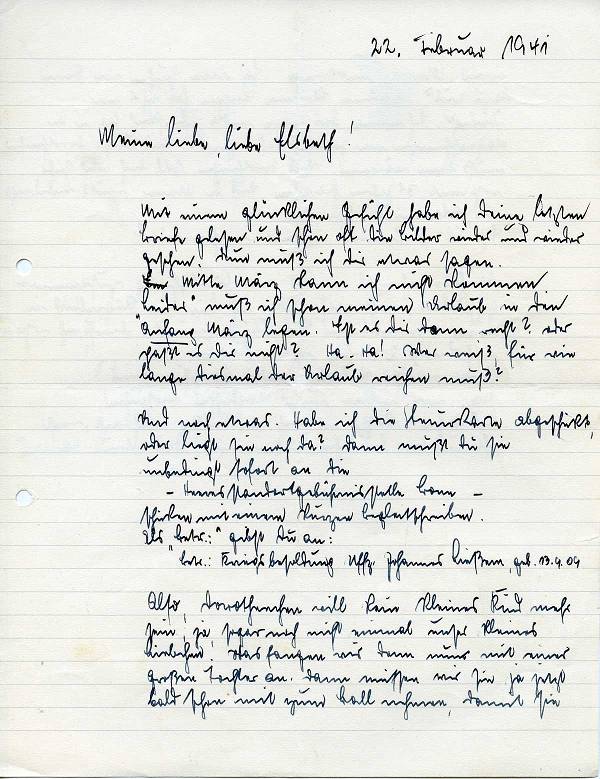 22. Februar 1941
Meine liebe, liebe Elsbeth!
Mit einem glücklichen Gefühl habe ich Deine letzten
Briefe gelesen und schon oft die Bilder wieder und wieder
gesehen. Nun muß ich dir etwas sagen.
Mitte März kann ich nicht kommen
"leider" muß ich schon meinen Urlaub in den
"Anfang März legen. Ist es dir dann recht? oder
paßt es dir nicht? Ha-Ha! Wer weiß, für wie
lange diesmal der Urlaub reichen muß?
Und noch etwas. Habe ich die Steuerkarte abgeschickt,
oder liegt sie noch da? Dann mußt du sie
unbedingt sofort an die
- Heeresstandortgebührnisstelle Bonn -
schicken mit einem kurzen Begleitschreiben.
Als betr.:" gibst Du an:
"betr.: Kriegsbesoldung Uffz. Johannes, geb. 13.9.09
Also, Dorotheechen will kein kleines Kind mehr
sein, ja, sogar noch nicht einmal unser kleines
Was fangen wir denn nur mit einer
großen Tochter an. Dann müssen wir sie ja jetzt
bald schon mit zum Ball nehmen, damit sie